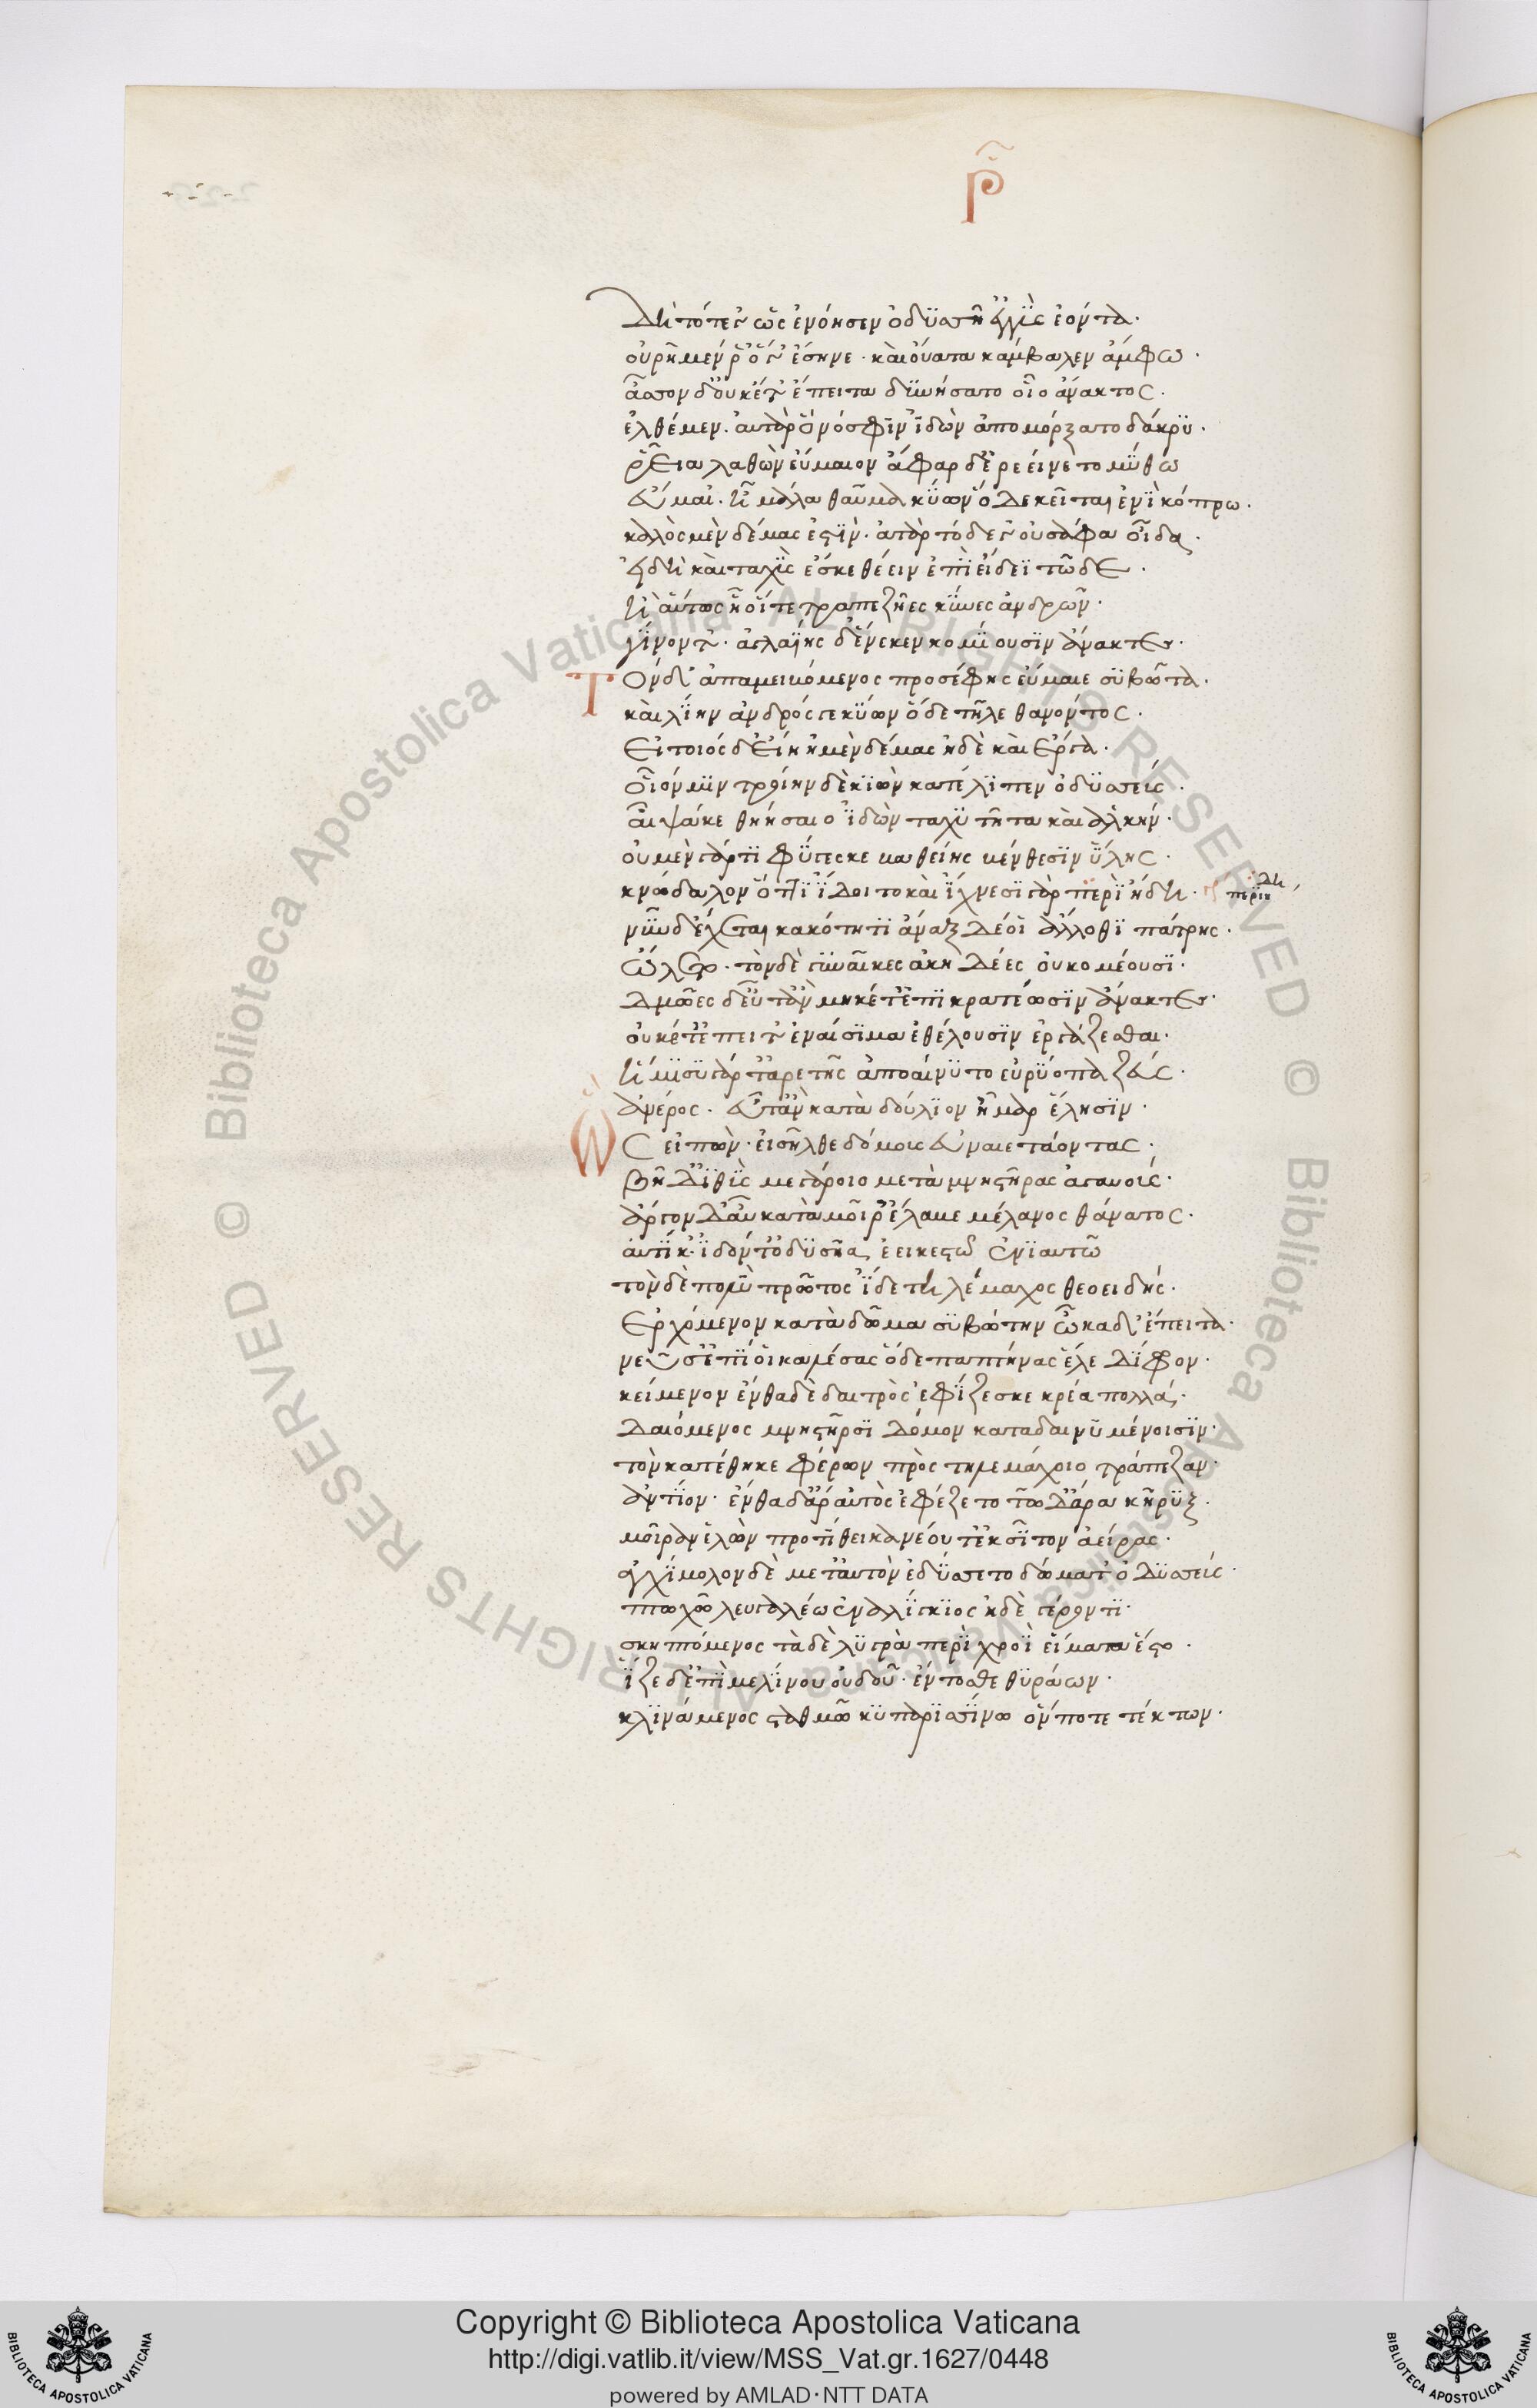 ρ
Δὴ τότε γ' ὡς ἐνόησεν ὀδϋσσῆ ἐγγῢς ἐόντα·
οὐρῆ μέν ῥ' ὅ γ' ἔσηνε· καὶ οὔατα κάμβαλεν ἄμφω·
ἆσσον δ' οὐκέτ' ἔπειτα δϋνήσατο οἷο ἄνακτος·
ἐλθέμεν· αὐτὰρ ὁ νόσφϊν ἰδὼν ἀπομόρξατο δάκρϋ·
ῥεῖα λαθὼν εὔμαιον ἄφαρ δ' ἐρεείνετο μΰθω
εὔμαι'· ἦ μάλα θαῦμα κΰων ὅδε κεῖται ἐνῒ κόπρω·
καλὸς μὲν δέμας ἐστΐν· ἀτὰρ τόδε γ' οὐ σάφα οἶδα·
εἰ δὴ καὶ ταχῢς ἔσκε θέειν ἐπῒ εἴδεϊ τῶδε·
ἢ αὔτως οἷοί τε τραπεζῆες κΰνες ἀνδρῶν·
γΐνοντ'· ἀγλαΐης δ' ἕνεκεν κομέουσϊν ἄνακτες·
Τὸν δ' ἀπαμειβόμενος προσέφης εὔμαιε σϋβῶτα·
καὶ λΐην ἀνδρός γε κΰων ὅδε τῆλε θανόντος·
Εἰ τοιός δ' εἴη ἠμὲν δέμας ἠδὲ καὶ ἔργα·
οἷόν μϊν τροίην δὲ κϊὼν κατέλϊπεν ὀδϋσσεύς·
αἶψά κε θηήσαιο ἰδὼν ταχϋτῆτα καὶ ἀλκήν·
οὐ μὲν γάρ τϊ φΰγεσκε βαθείης βένθεσϊν ὕλης·
κνώδαλον ὅττϊ ἴδοιτο καὶ ἴχνεσϊ γὰρ περῒ ἤδη·
περιήδη
νῦν δ' ἔχεται κακότητϊ ἄναξ δέ οἱ ἄλλοθϊ πάτρης·
ὤλετο· τὸν δὲ γϋναῖκες ἀκηδέες οὐ κομέουσϊ·
Δμῶες δ' εὖτ' ἂν μηκέτ' ἐπϊκρατέωσϊν ἄνακτες·
οὐκέτ' ἔπειτ' ἐναίσϊμα ἐθέλουσϊν ἐργάζεσθαι·
ἥμϊσϋ γάρ τ' ἀρετῆς ἀποαίνϋτο εὐρΰοπα ζεύς·
ἀνέρος· εὖτ' ἂν κατὰ δούλϊον ἦμαρ ἕλησϊν·
Ὣς εἰπὼν· εἰσῆλθε δόμους εὐναιετάοντας·
βῆ δ' ἰθῢς μεγάροιο μετὰ μνηστῆρας ἀγαυούς·
ἄργον δ' αὖ κατὰ μοῖρ' ἔλαβε μέλανος θάνατος·
αὐτίκ' ἰδόντ' ὀδϋσῆα ἐεικοστῶ ἐνϊαυτῶ
τὸν δὲ πολῢ πρῶτος ἴδε τηλέμαχος θεοειδής·
Ἐρχόμενον κατὰ δῶμα σϋβώτην ὦκα δ' ἔπειτα·
νεῦσ' ἐπῒ οἷ καλέσας ὅδε παπτήνας ἕλε δίφρον·
κείμενον ἔνθα δὲ δαιτρὸς ἐφΐζεσκε κρέα πολλά·
Δαιόμενος μνηστῆρσϊ δόμον κάτα δαινϋμένοισϊν·
τὸν κατέθηκε φέρων πρὸς τηλεμάχοιο τράπεζαν·
ἀντΐον· ἔνθα δ' ἄρ' αὐτὸς ἐφέζετο τῶ δ' ἄρα κῆρϋξ·
μοῖραν ἑλὼν προτΐθει κανέου τ' ἐκ σῖτον ἀείρας·
ἀγχΐμολον δὲ μετ' αὐτὸν ἐδΰσετο δώματ' ὀδϋσσεύς·
πτωχῶ λευγαλέω ἐναλΐγκϊος ἠδὲ γέροντϊ·
σκηπτόμενος τὰ δὲ λϋγρὰ περῒ χροῒ εἵματα ἕστο·
ἷζε δ' ἐπῒ μελΐνου οὐδοῦ· ἔντοσθε θϋράων·
κλϊνάμενος σταθμῶ κϋπαρϊσσΐνω ὅν ποτε τέκτων·
Copyright © Biblioteca Apostolica Vaticana
http://digi.vatlib.it/view/MSS_Vat.gr.1627/0448
powered by AMLAD·NTT DATA